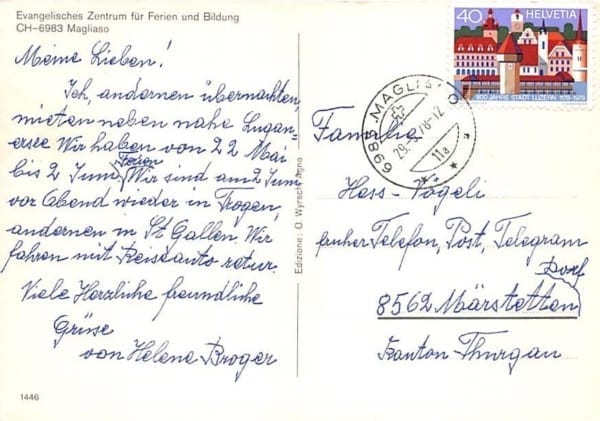 Evangelisches Zentrum für Ferien und Bildung
CH-6983 Magliaso
Meine Lieben!
Ich, andernen übernachten,
mieten neben nahe Lugan-
ersee Wir haben von 22 Mai
Ferien
bis 2 Juni, Wir sind am 2 Juni
vor Abend wieder in Trogen,
andernen in St Gallen. Wir
fahren mit Reiseauto retur.
Viele Herzliche freundliche
Grüsse
von Helena Broger
1446
Edizione: O. Wyrsch, Agno
40 HELVETIA
800 JAHRE STADT LUZERN 1178-1978
6983 MAGLIASO
29.5.78-12
11a
Familie
Hess-Vögeli
früher Telefon, Post, Telegram
Dorf
8562 Märstetten
Kanton-Thurgau